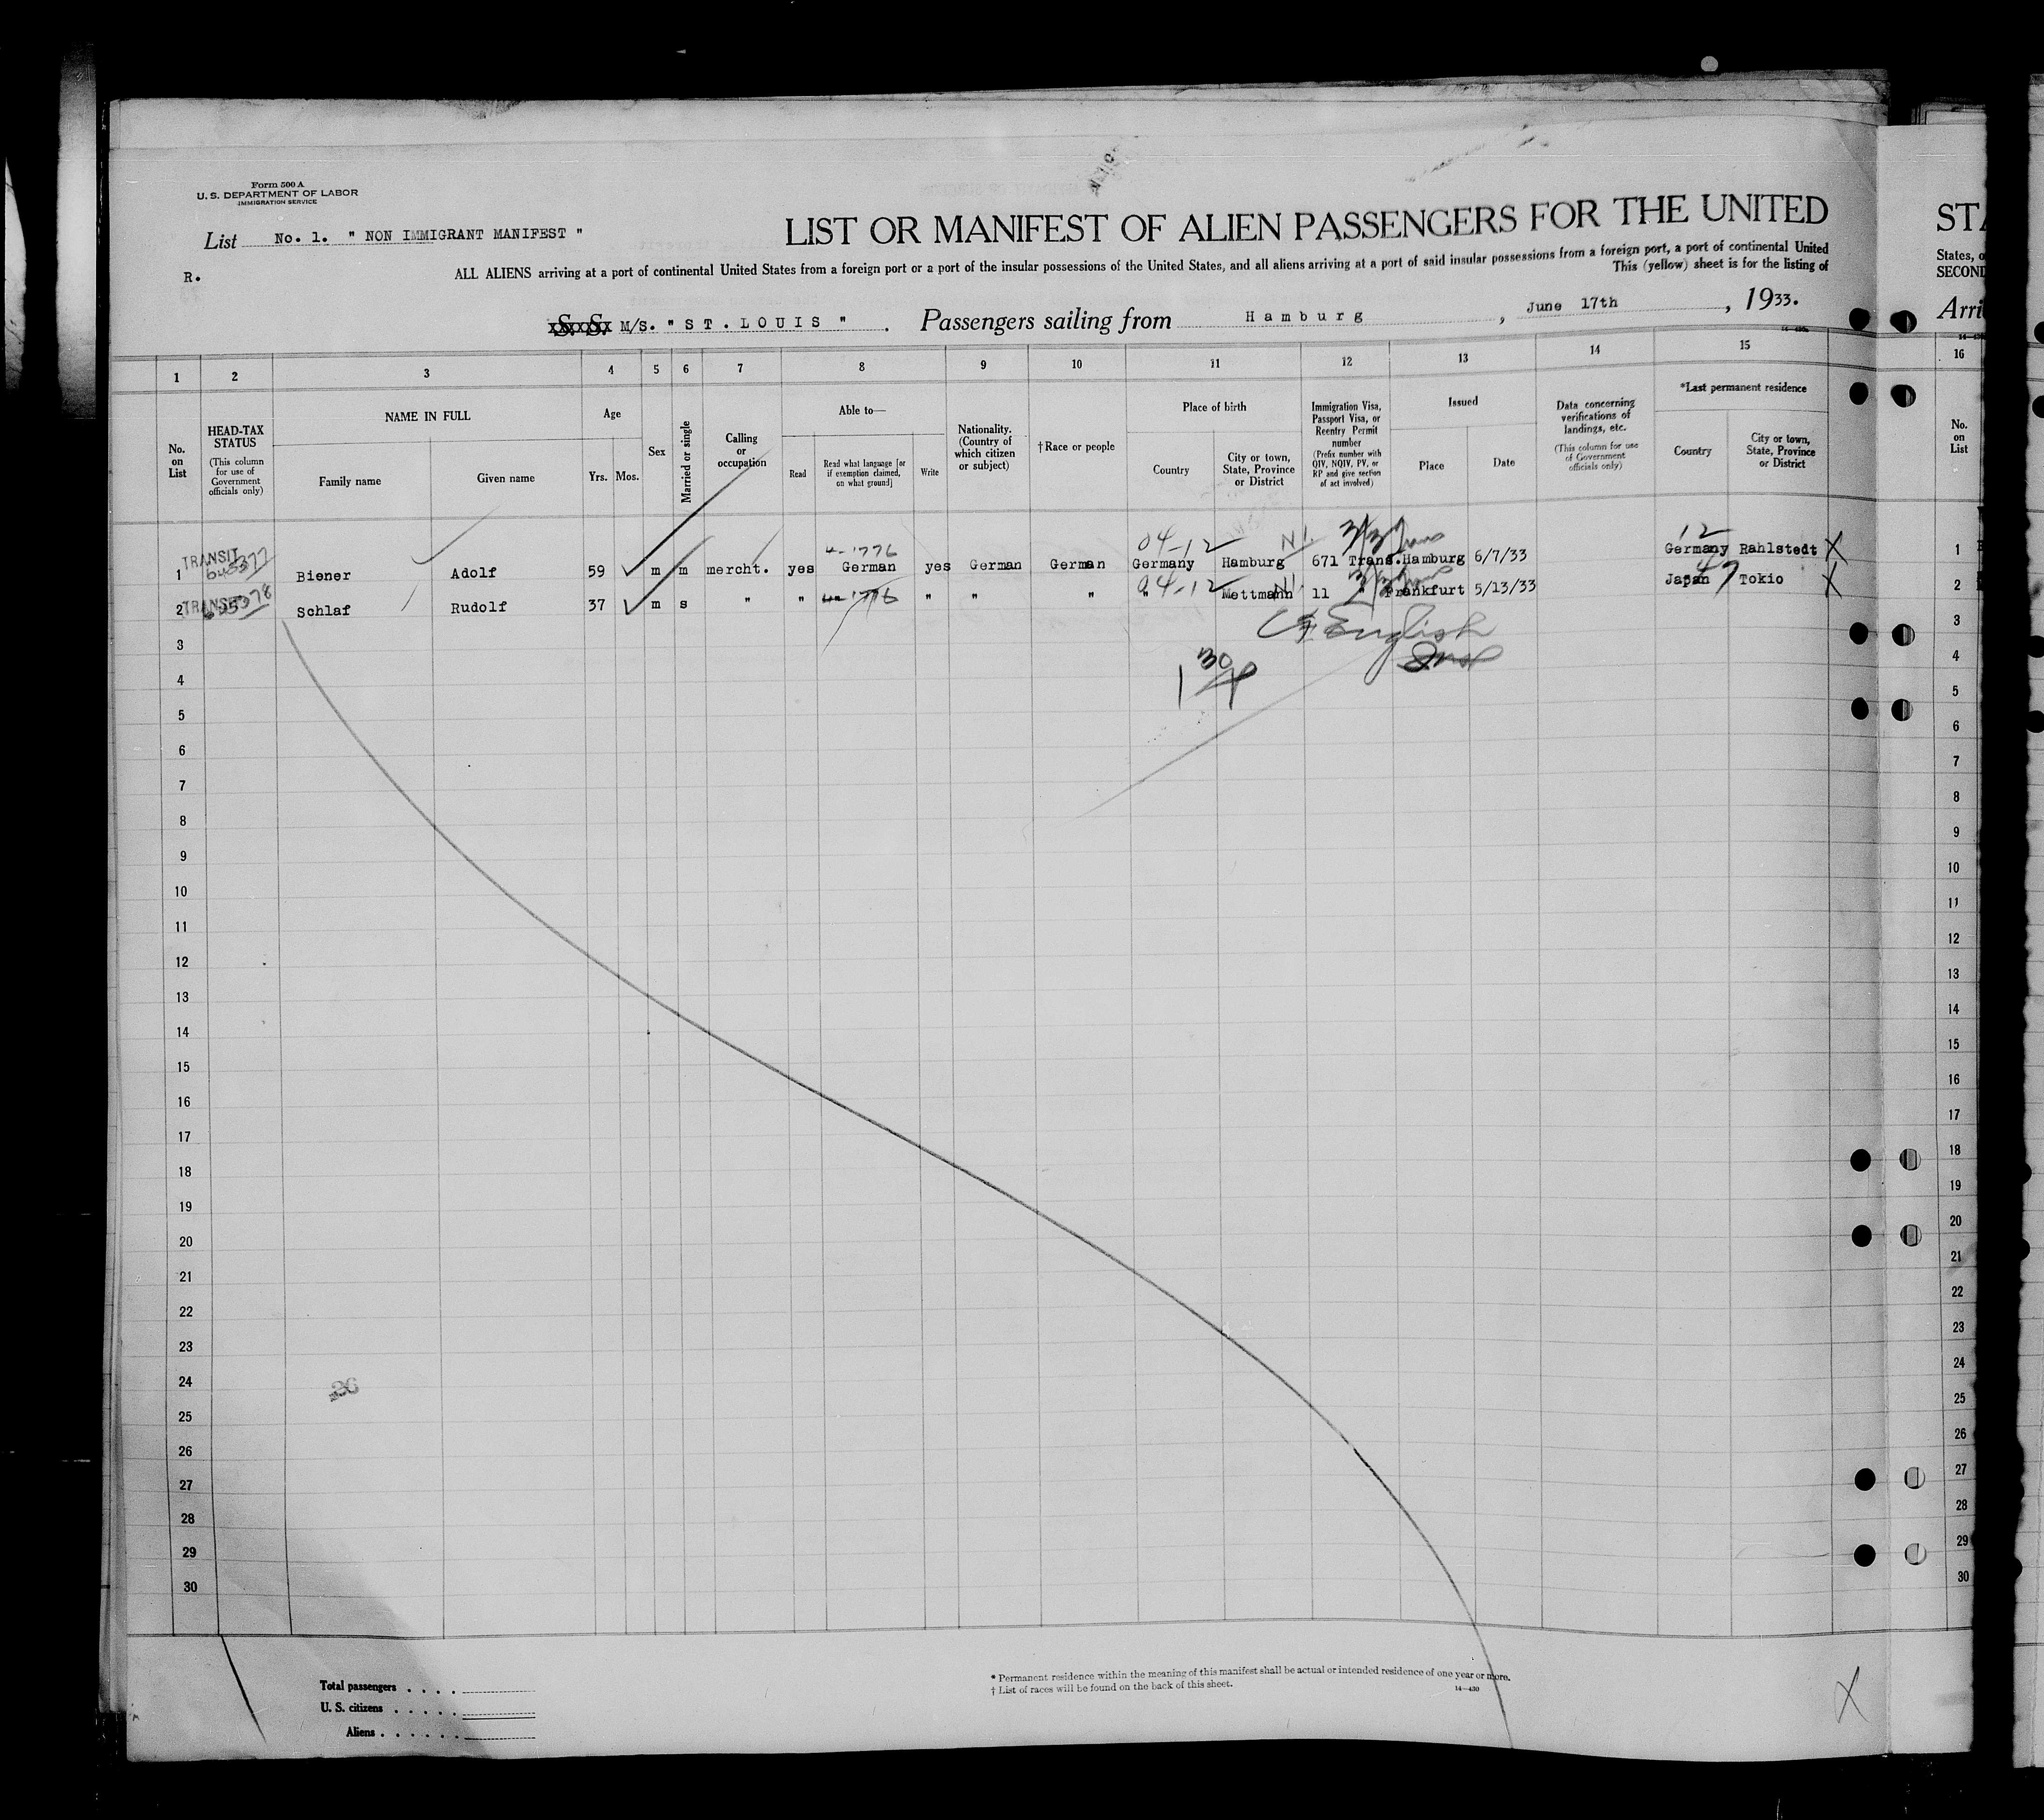 Form 500 A
U. S. DEPARTMENT OF LABOR
IMMIGRATION SERVICE
List No. 1. " NON IMMIGRANT MANIFEST "
R.
LIST OR MANIFEST OF ALIEN PASSENGERS FOR THE UNITED
ALL ALIENS arriving at a port of continental United States from a foreign port or a port of the insular possessions of the United States, and all aliens arriving at a port of said insular possessions from a foreign port, a port of continental United
This (yellow) sheet is for the listing of
S. S. M/S. " ST. LOUIS " . Passengers sailing from Hamburg , June 17th , 1933.
STA
States, o
SECOND
Arri
1 2 3 4 5 6 7 8 9 10 11 12 13 14 15 16
No. on List
HEAD-TAX STATUS (This column for use of Government officials only)
NAME IN FULL
Family name Given name
Age
Yrs. Mos.
Sex
Married or single
Calling or occupation
Able to—
Read
Read what language [or if exemption claimed, on what ground]
Write
Nationality. (Country of which citizen or subject)
†Race or people
Place of birth
Country
City or town, State, Province or District
Immigration Visa, Passport Visa, or Reentry Permit number (Prefix number with QIV, NQIV, PV, or RP and give section of act involved)
Issued
Place Date
Data concerning verifications of landings, etc. (This column for use of Government officials only)
*Last permanent residence
Country
City or town, State, Province or District
No. on List
04-12 12
4-1776
1 TRANSIT 645377 Biener Adolf 59 m m mercht. yes German yes German German Germany Hamburg 671 Trans. Hamburg 6/7/33 Germany Rahlstedt X 1
04-12
2 TRANSIT 645378 Schlaf Rudolf 37 m s " " " " " " " Mettmann 11 " Frankfurt 5/13/33 Japan Tokio X 2
English
3 3
4 4
5 5
6 6
7 7
8 8
9 9
10 10
11 11
12 12
13 13
14 14
15 15
16 16
17 17
18 18
19 19
20 20
21 21
22 22
23 23
24 26 24
25 25
26 26
27 27
28 28
29 29
30 30
Total passengers . . . .
U. S. citizens . . . . .
Aliens . . . . . .
* Permanent residence within the meaning of this manifest shall be actual or intended residence of one year or more.
† List of races will be found on the back of this sheet.
14—430
X